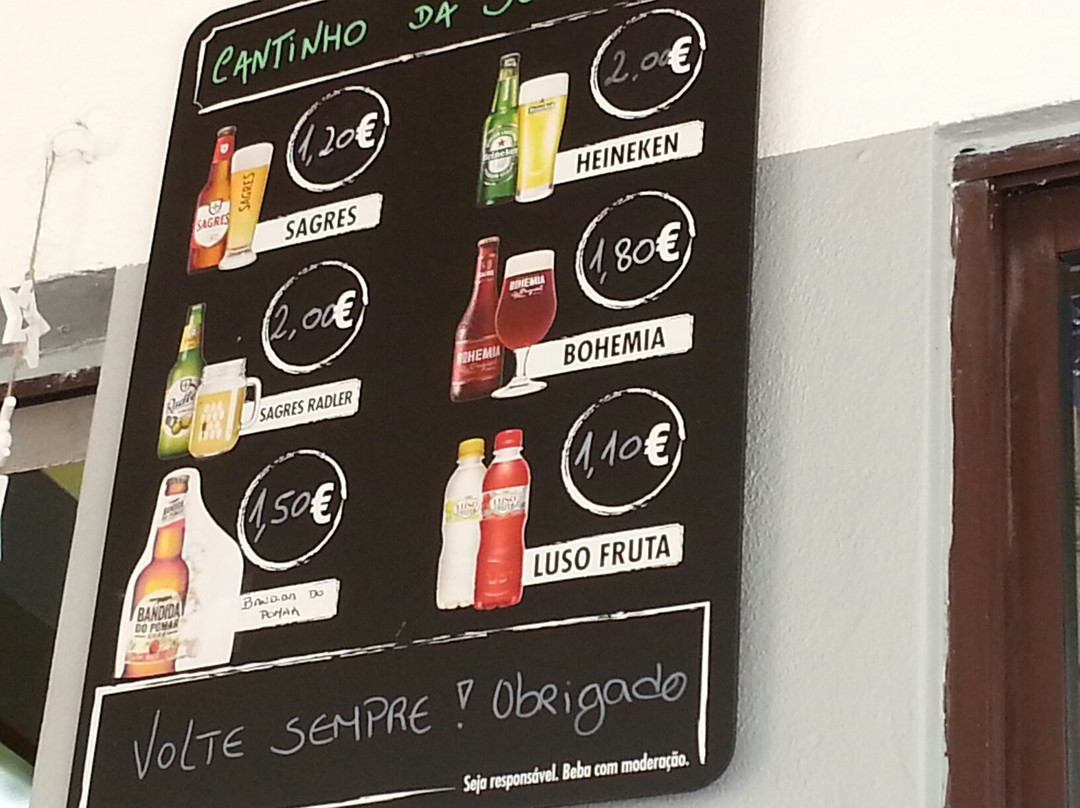 CANTINHO DA
1,20€
SAGRES
SAGRES
SAGRES
2,00€
Heineken
Heineken
HEINEKEN
2,00€
Radler
SAGRES RADLER
1,80€
BOHEMIA
BOHEMIA
BOHEMIA
1,50€
BANDIDA
DO POMAR
BANDIDA DO
POMAR
1,10€
LUSO
LUSO FRUTA
VOLTE SEMPRE! Obrigado
Seja responsável. Beba com moderação.